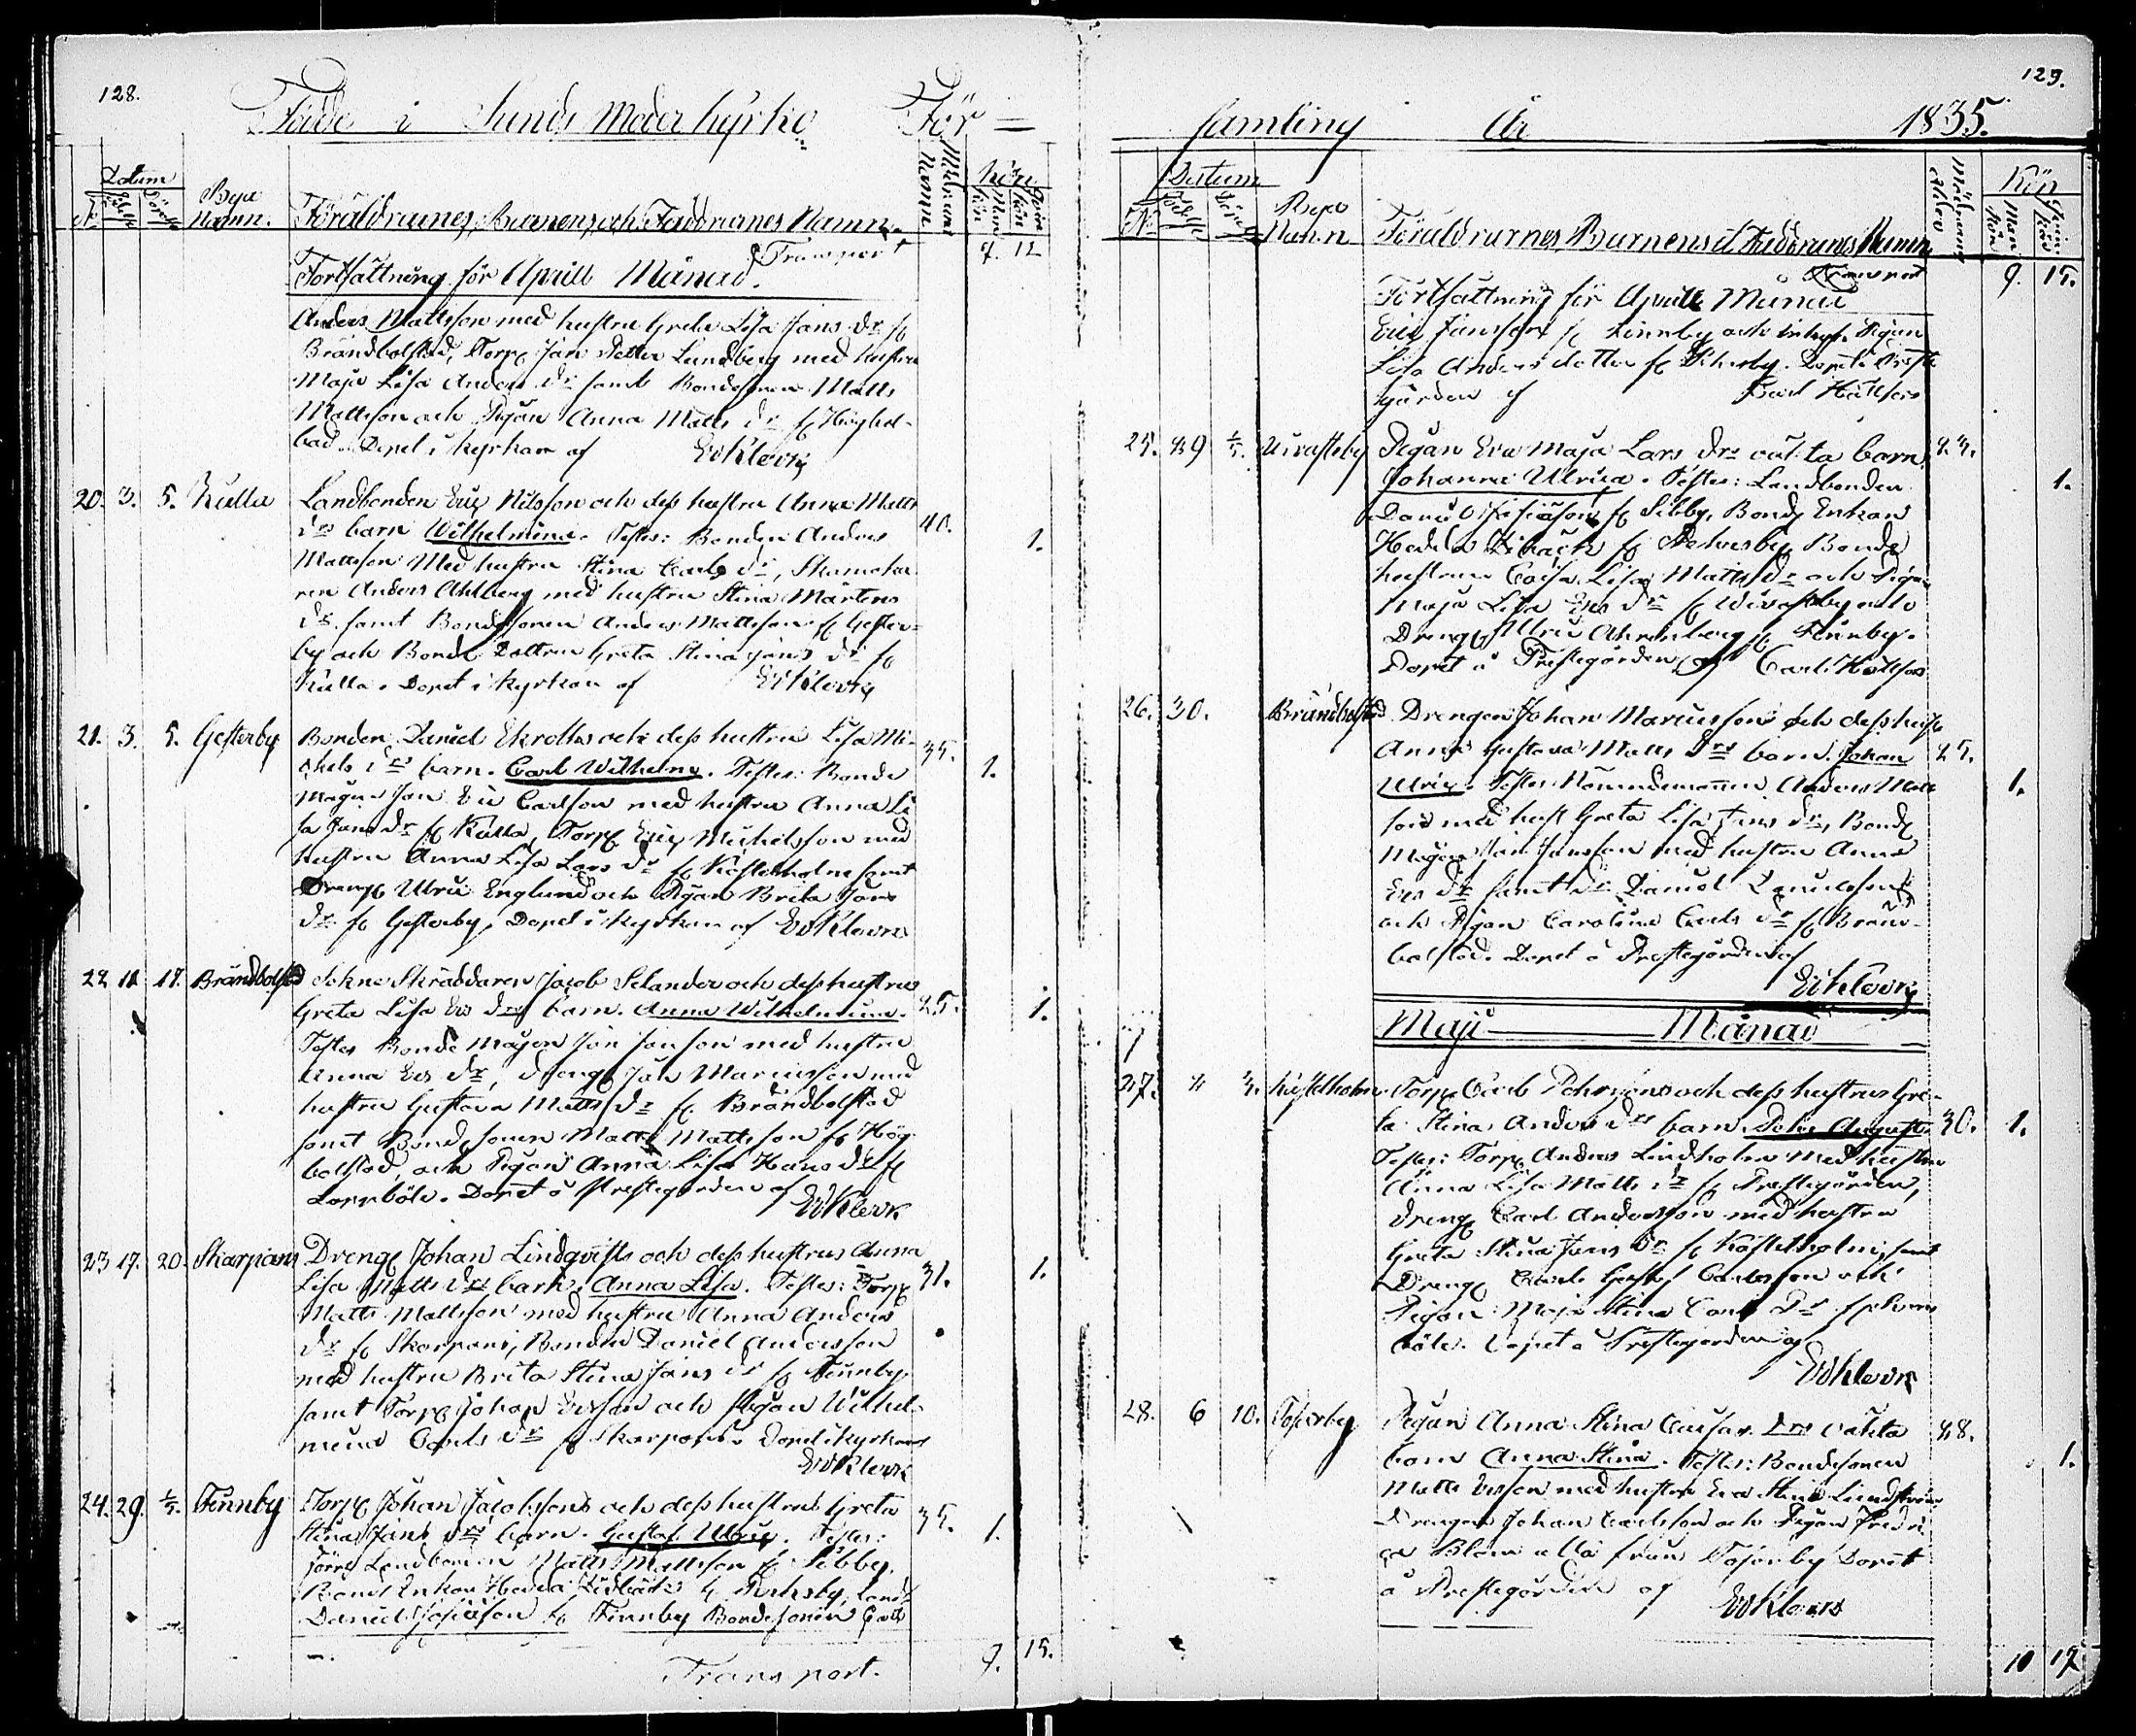 128.
Födde i Sunds Moderkyrko För=
Datum
No Födelse Döpelse
Byar Namn.
Föräldrarnes, Barnens, och Faddrarnes Namn.
Moderns
Kön
Mankön Qvinkön
Transport 7. 12
Fortsättning för Aprill Månad.
Anders Mattsson med hustru Greta Lisa Jans dr fr
Brändbolstad, Torp. Jan Petter Lundberg med hustru
Maja Lisa Anders dr samt Bondesonen Matts
Mattsson och Pigan Anna Matts dr fr Högbol-
stad. Döpet i kyrkan af
20. 3. 5. Kulla Landbonden Eric Nilsson och dess hustru Anna Matts 40.
drs barn Wilhelmina. Testes: Bonden Anders 1.
Mattsson Med hustru Stina Carls dr, Skomaka
ren Anders Ahlberg med hustru Stina Mårtens
dr samt Bondesonen Anders Mattsson fr Gester=
by och Bonde Dottren Greta Stina Jans dr fr
Kulla. Döpet i kyrkan af
21. 3. 5. Gesterby Bonden Daniel Ekroths och dess hustru Lisa Mi- 35.
chels drs barn. Carl Wilhelm. Testes: Bonde 1.
Mågen Jan Eric Carlsson med hustru Anna Li
sa Jans dr fr Kulla, Torp. Eric Michelsson med
hustru Anna Lisa Lars dr fr Kastelholm samt
Dreng. Ulric Englund och Pigan Brita Jans
dr fr Gesterby, Döpet i kyrkan af
22 11 17. Brändbolstad Sokne Skräddaren Jacob Selander och dess hustrus
Greta Lisa Ers drs barn. Anna Wilhelmina. 25. 1.
Testes Bonde Mågen Jan Jansson med hustru
Anna Ers dr, Dreng. Jan Marcusson med
hustru Gustava Matts dr fr Brändbolstad
samt Bondesonen Matts Mattsson fr Hög
bolstad, och Pigan Anna Lisa Hans dr fr
Lappböle. Döpet å Prestegården af
23 17. 20. Skarpans Dreng. Johan Lindqvists och dess hustrus Anna 31.
Lisa Matts drs barn. Anna Lisa. Testes: Torp. 1.
Matts Mattsson med hustru Anna Anders
dr fr Skarpans, Bonden Daniel Andersson
med hustru Brita Stina Jans dr fr Finnby
samt Torp. Johan Ersson och Pigan Wilhel-
mina Carls dr fr Skarpans. Döpet i kyrkan
24. 29. Finnby Torp. Johan Jacobssons och dess hustrus Greta 35.
Stina Jans drs barn. Gustaf Ulric. Testes: 1.
Förre Landbonden Matts Mattsson fr Sibby,
Bonde Enkan Hedda fr Landb.
Daniel Josiasson fr Finnby Bondesonen
Transport. 9. 15.
129.
samling År 1835.
Datum
No Födelse Döpelse
Byar Namn
Föräldrarnes, Barnens et Faddrarnes Namn
Mödrarnas Ålder
Kön
Mankön Qvinkön
Transport 9. 15.
Fortsättning för Aprill Månad
Eric Jansson fr Finnby och Pigan
Lisa Anders dotter fr Döpet å Preste
gården af
25. 29 Pigan Eva Maja Lars drs oäkta barn 23.
Johanna Ulrica. Testes: Landbonden 1.
Daniel Josiasson fr Sibby, Bonde Enkan
Hedda fr Bonde
hustrun Cajsa Lisa Matts dr och Pigan
Maja Lisa Ers dr fr och
Dreng. Ulric Ahrenberg fr Finnby.
Döpet å Prestegården af Carl
26. 30. Brändbolstad Drengen Johan Marcussons och dess hustr.
Anna Gustava Matts drs barn. Johan 25.
Ulric. Testes Nämndemannen Anders Matt 1.
son med hust Greta Lisa Jans dr, Bonde
Mågen Jan Jansson med hustru Anna
Ers dr samt dr. Daniel Danielsson
och Pigan Carolina Carls dr fr Bränd-
bolstad. Döpet å Prestegården af
Maji Månad
27. 3. Kastelholm. Torp. Carl och dess hustrus Gre-
ta Stina Anders drs barn August. 30. 1.
Testes: Torp. Anders Lindholm med hustru
Anna Lisa Matts dr fr Prestegården,
Dreng. Carl Andersson med hustru
Greta Stina Jans dr fr Kastelholm, samt
Dreng. Carl Gust. Carlsson och
Pigan Maja Stina Carls dr fr
böle. Döpet å Prestegården af
28. 6 10. Tosarby Pigan Anna Stina drs oäkta 28.
barn Anna Stina. Testes: Bondesonen 1.
Matts Ersson med hustru Eva Stina Lundström
Drengen Johan Carlsson och Pigan Fredri
ca Blom alla från Tosarby Döpet
å Prestegården af
10 17